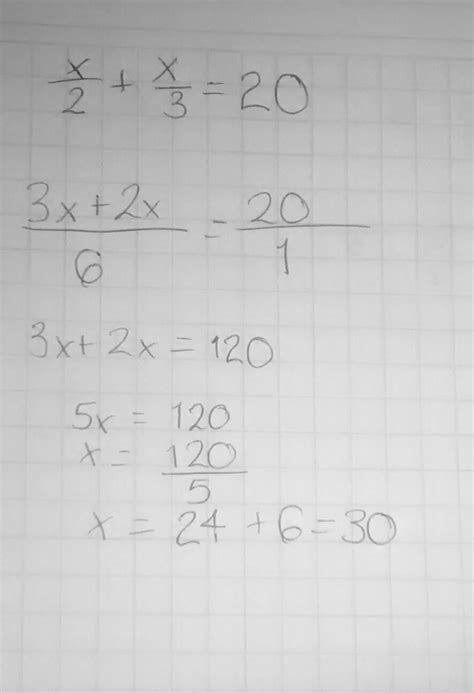 x/2 + x/3 = 20
3x+2x/6 = 20/1
3x+2x=120
5x = 120
x = 120/5
x = 24 +6=30